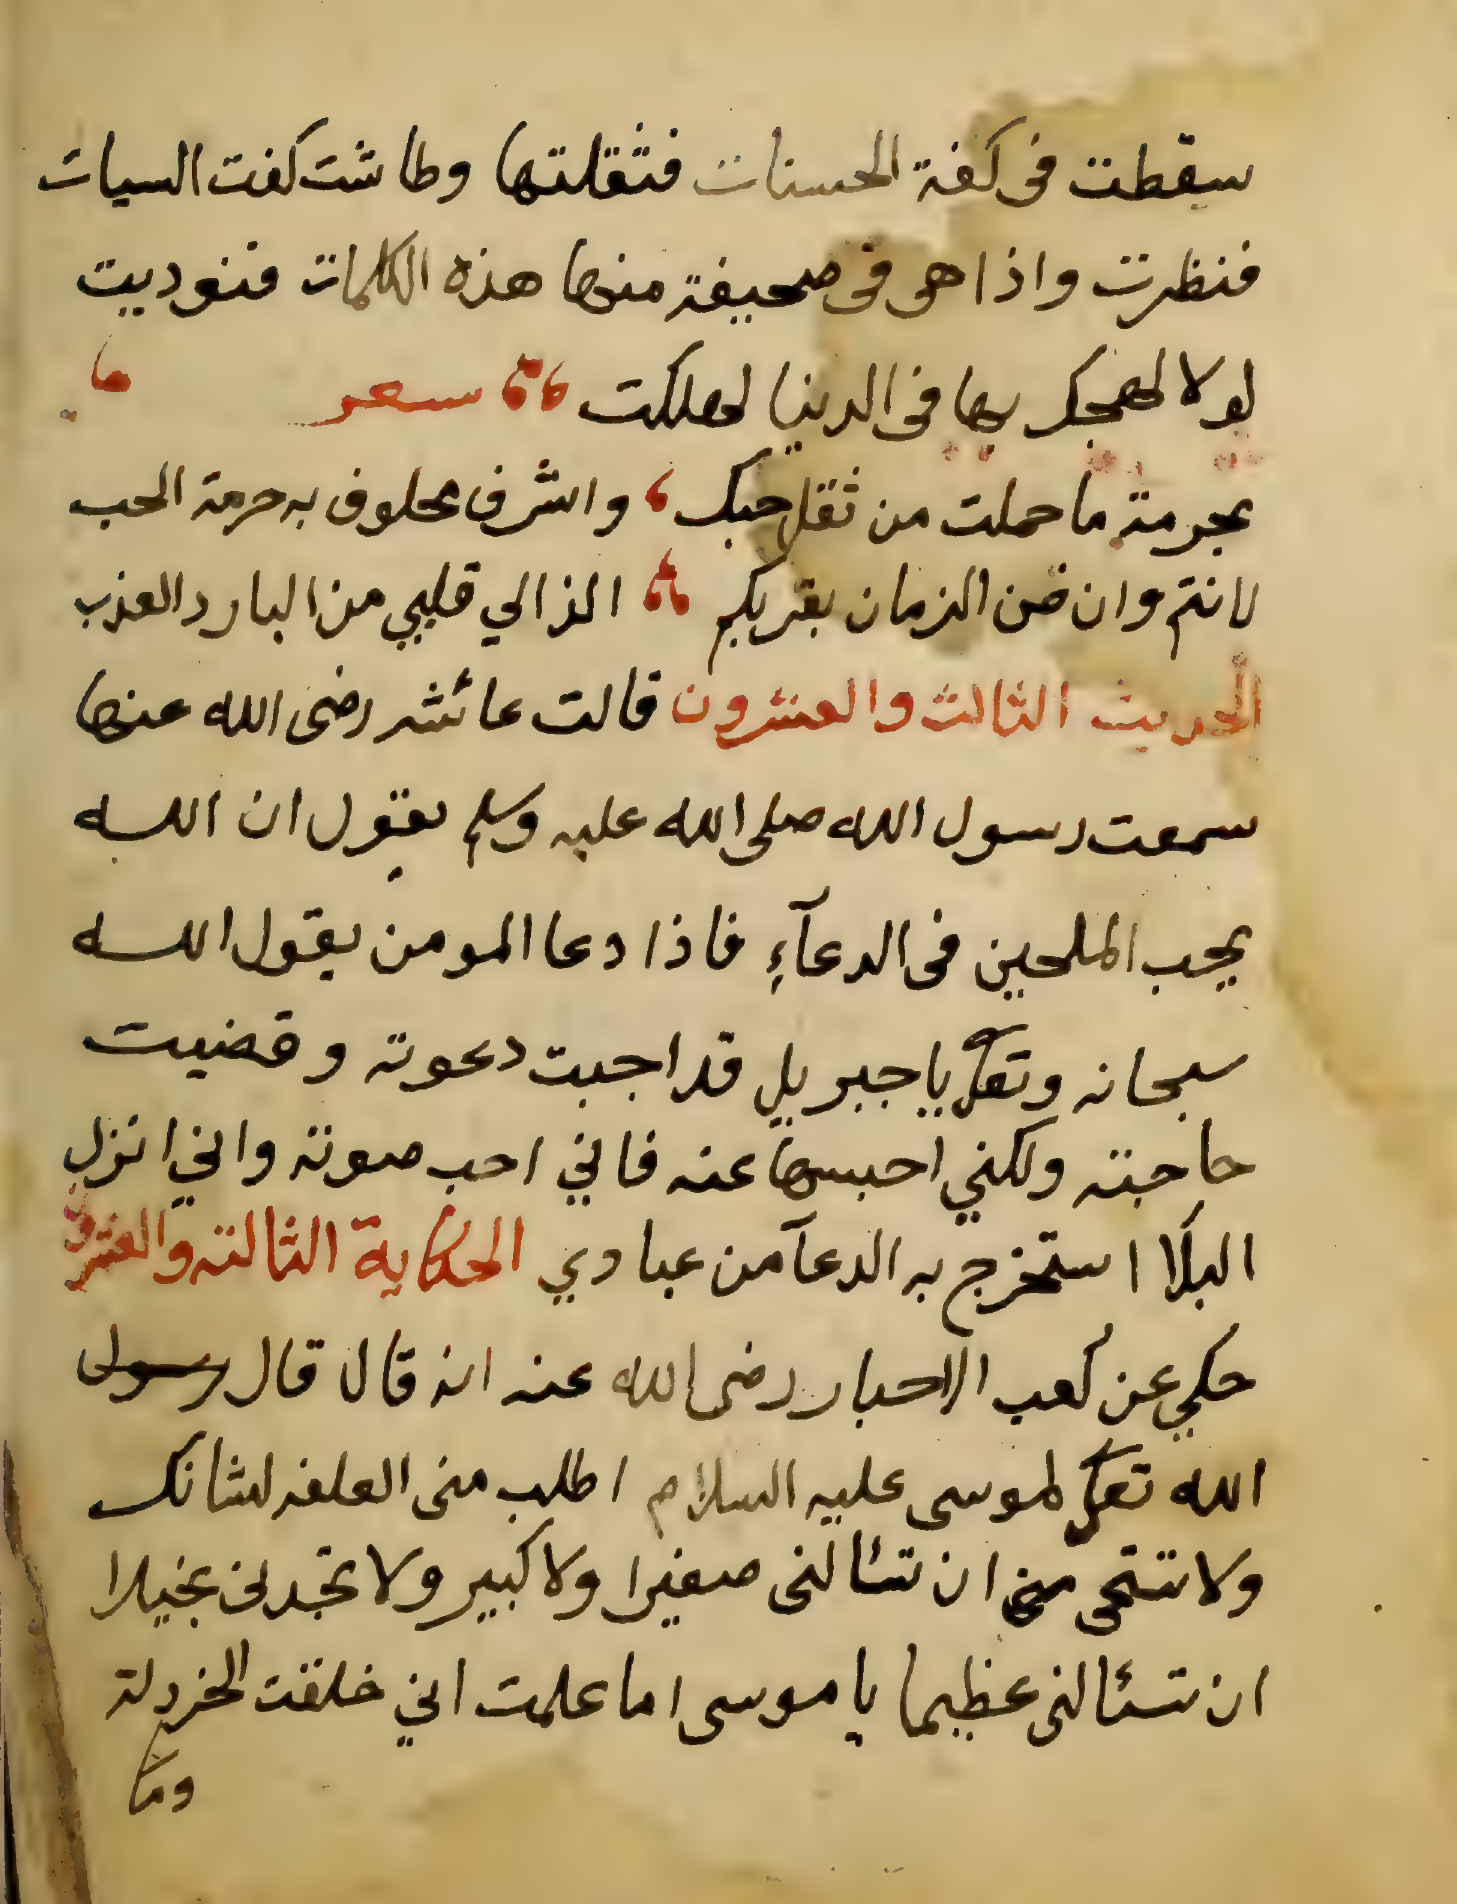 سقطت فى كفة الحسنات فثقلتها وطاشت كفت السيات
فنظرت واذا هى فى صحيفة منها هذه الكلمات فنوديت
لولا لهجك بها فى الدنيا لهلكت سعر
بحرمة ما حملت من ثقل حبك واشرف محلوف به حرمة الحب
لانتم وان ضن الزمان بقربكم الذ الي قلبي من البارد العذب
الحديث الثالث والعشرون قالت عائشه رضى الله عنها
سمعت رسول الله صلى الله عليه وسلم يقول ان الله
يحب الملحين فى الدعآءِ فاذا دعا المومن يقول الله
سبحانه وتعا يا جبريل قد اجبت دعوته وقضيت
حاجته ولكني احبسها عنه فاني احب صوته واني انزل
البلا استخرج به الدعآ من عبادي الحكاية الثالثه والعشرون
حكي عن كعب الاحبار رضى الله عنه انه قال قال رسول
الله تعا لموسى عليه السلام اطلب منى العلفه لشاتك
ولا تستحى منى ان تسئالنى صغيرا ولا كبير ولا تجدنى بخيلا
ان تسئالنى عظيما يا موسى اما علمت اني خلقت الخردلة
وما